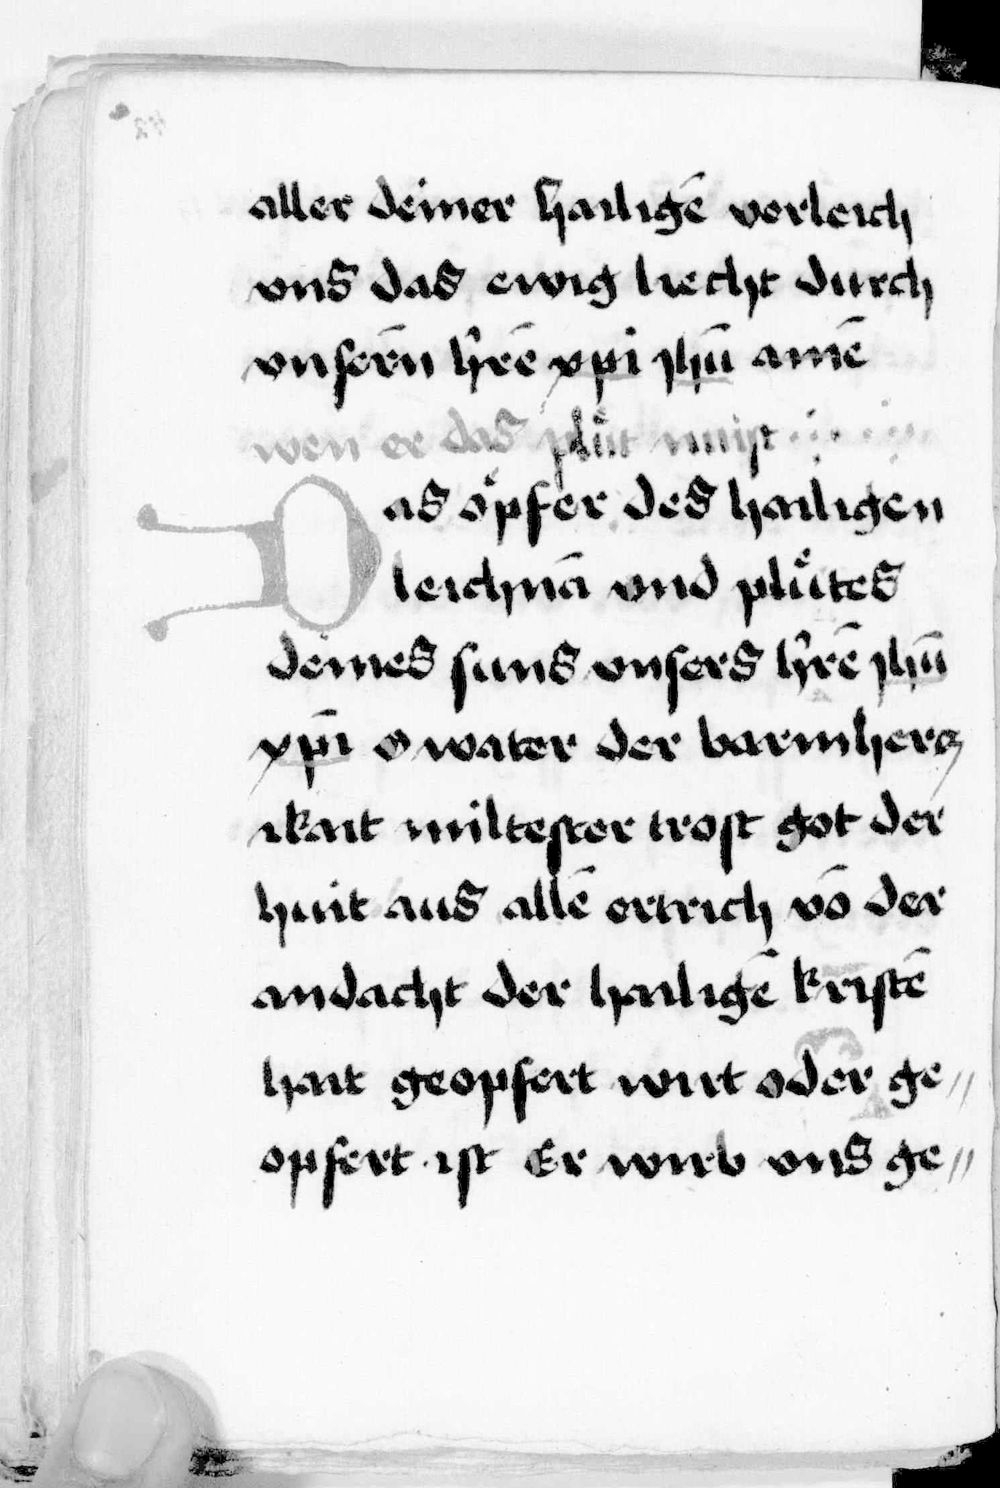 aller deiner hailigē verleich
vns das ewig liecht durch
vnserñ hʼrē xpi jhū amē
wen er das pluͤt nuijst
Das oͤpfer des hailigen
leichnā vnd pluͤtes
deines suns vnsers hʼrē jhū
xp̄i o water der barmhercz
ikait miltester trost got der
huit aus allē ertrich vō der
andacht der hailigē kristē
hait geopfert wirt oder ge〃
opfert ist Er wirb vns ge〃